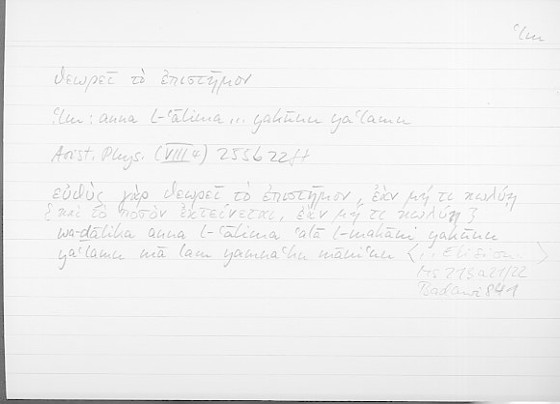 ʿlm
θεωρεῖ τὸ ἐπιστῆμον
ʿlm: anna l-ʿālima ... yakūnu yaʿlamu
Arist. Phys. (VIII 4) 255b22ff
εὐθὺς γὰρ θεωρεῖ τὸ ἐπιστῆμον, ἐὰν μή τι κωλύῃ
{καὶ τὸ ποσὸν ἐκτείνεται, ἐὰν μή τι κωλύῃ}
wa-ḏālika anna l-ʿālima ʿalā l-makāni yakūnu
yaʿlamu mā lam yamnaʿhu māniʿun <
Hs 215a21/22
Badawi 841